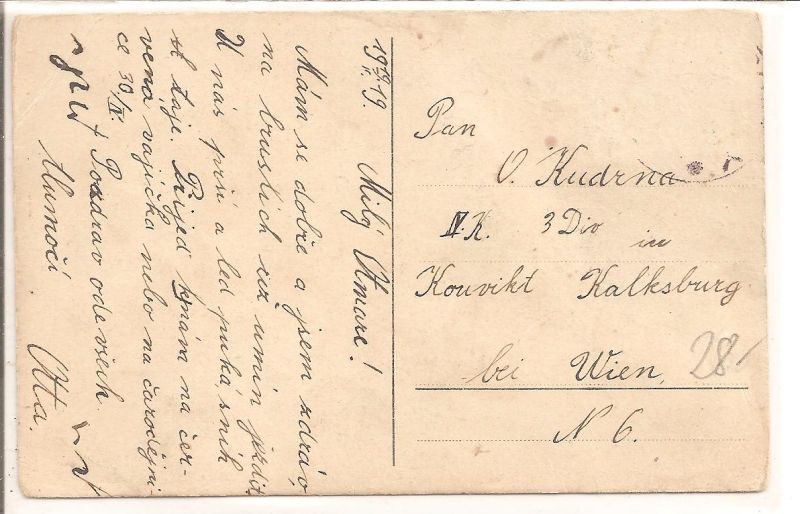 19 19/1 19.
Milý Otmare!
Mám se dobře a jsem zdráv,
na bruslích už umím jezdit.
U nás prší a led puká sníh
se taje. Přijeď k nám na čer-
vená vajíčka nebo na čarodějni-
ce 30/IV.
Pozdrav ode všech
Otta.
Pan
O. Kudrna
IV K. 3 Div
in
Konvikt Kalksburg
bei Wien,
N 6.
28